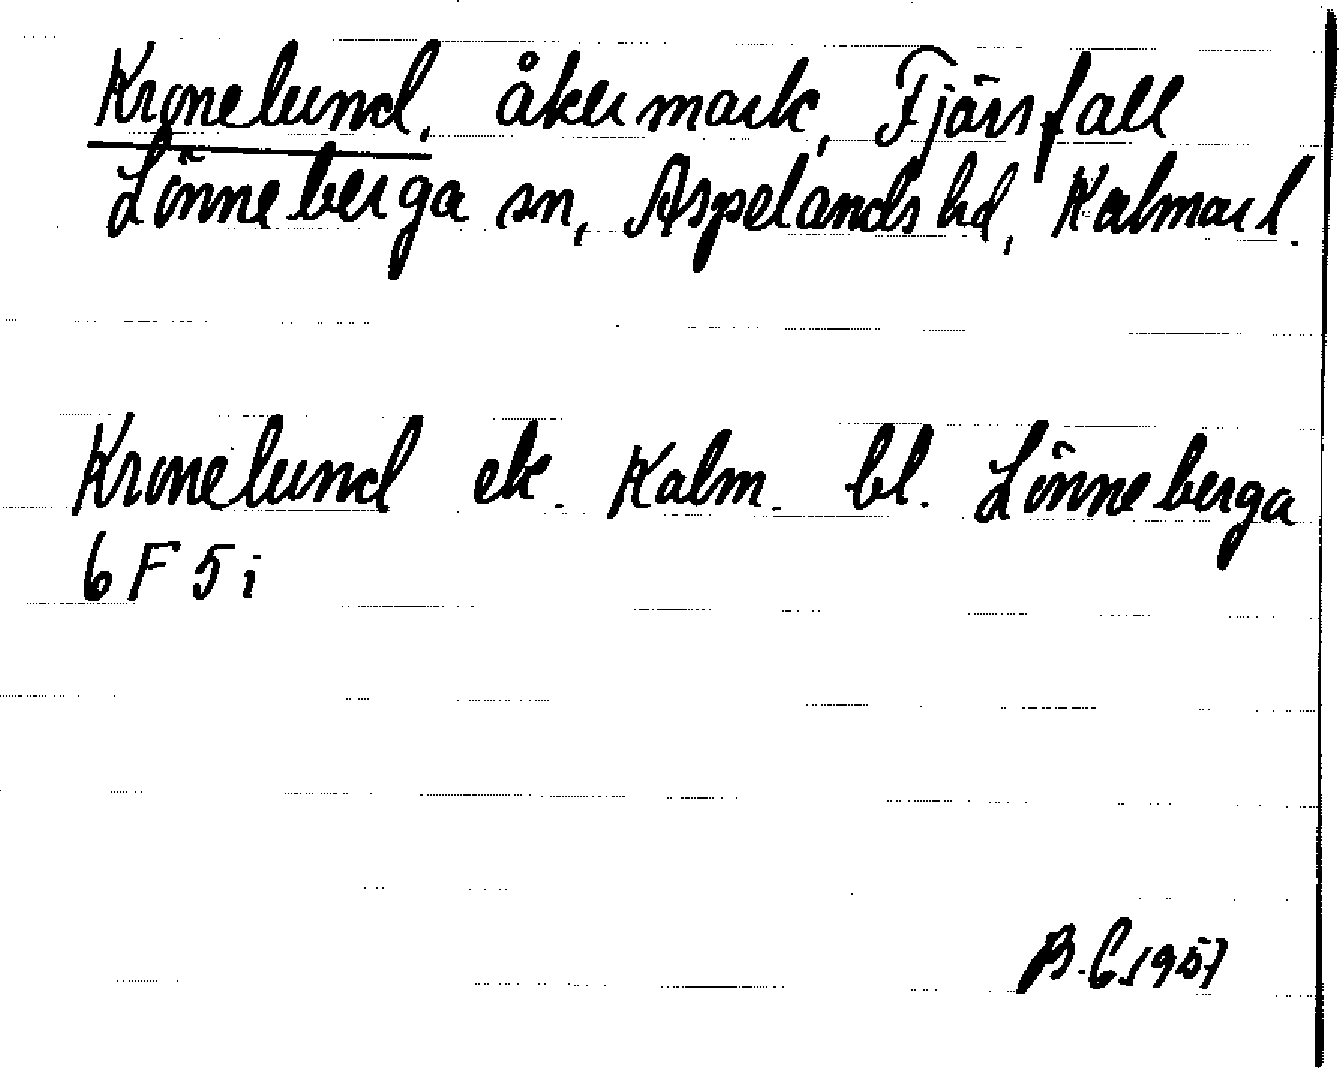 Kronelund, åkermark, Fjärsfall
Lönneberga sn, Aspelands hd, Kalmar l.
Kronelund ek. Kalm. bl. Lönneberga
6 F 5 i
B. C. 1957